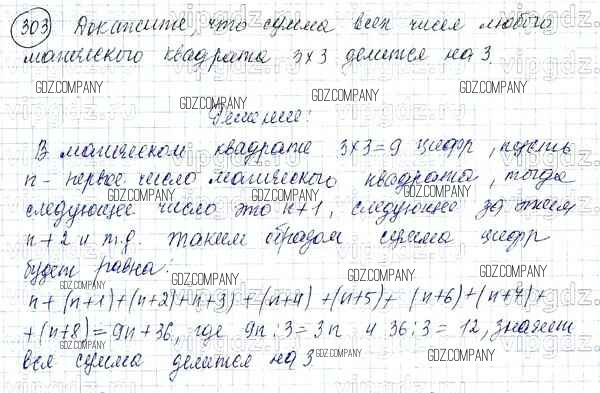 303 Докажите, что сумма всех чисел любого
магического квадрата 3×3 делится на 3.
Решение:
В магическом квадрате 3×3=9 цифр, пусть
n - первое число магического квадрата, тогда
следующее число это n+1, следующее за этим
n+2 и т.д. Таким образом сумма цифр
будет равна:
n+(n+1)+(n+2)+n+3)+(n+4)+(n+5)+(n+6)+(n+7)+
+(n+8)=9n+36, где 9n:3=3n и 36:3=12, значит
вся сумма делится на 3
GDZ.COMPANY
vipgdz.ru